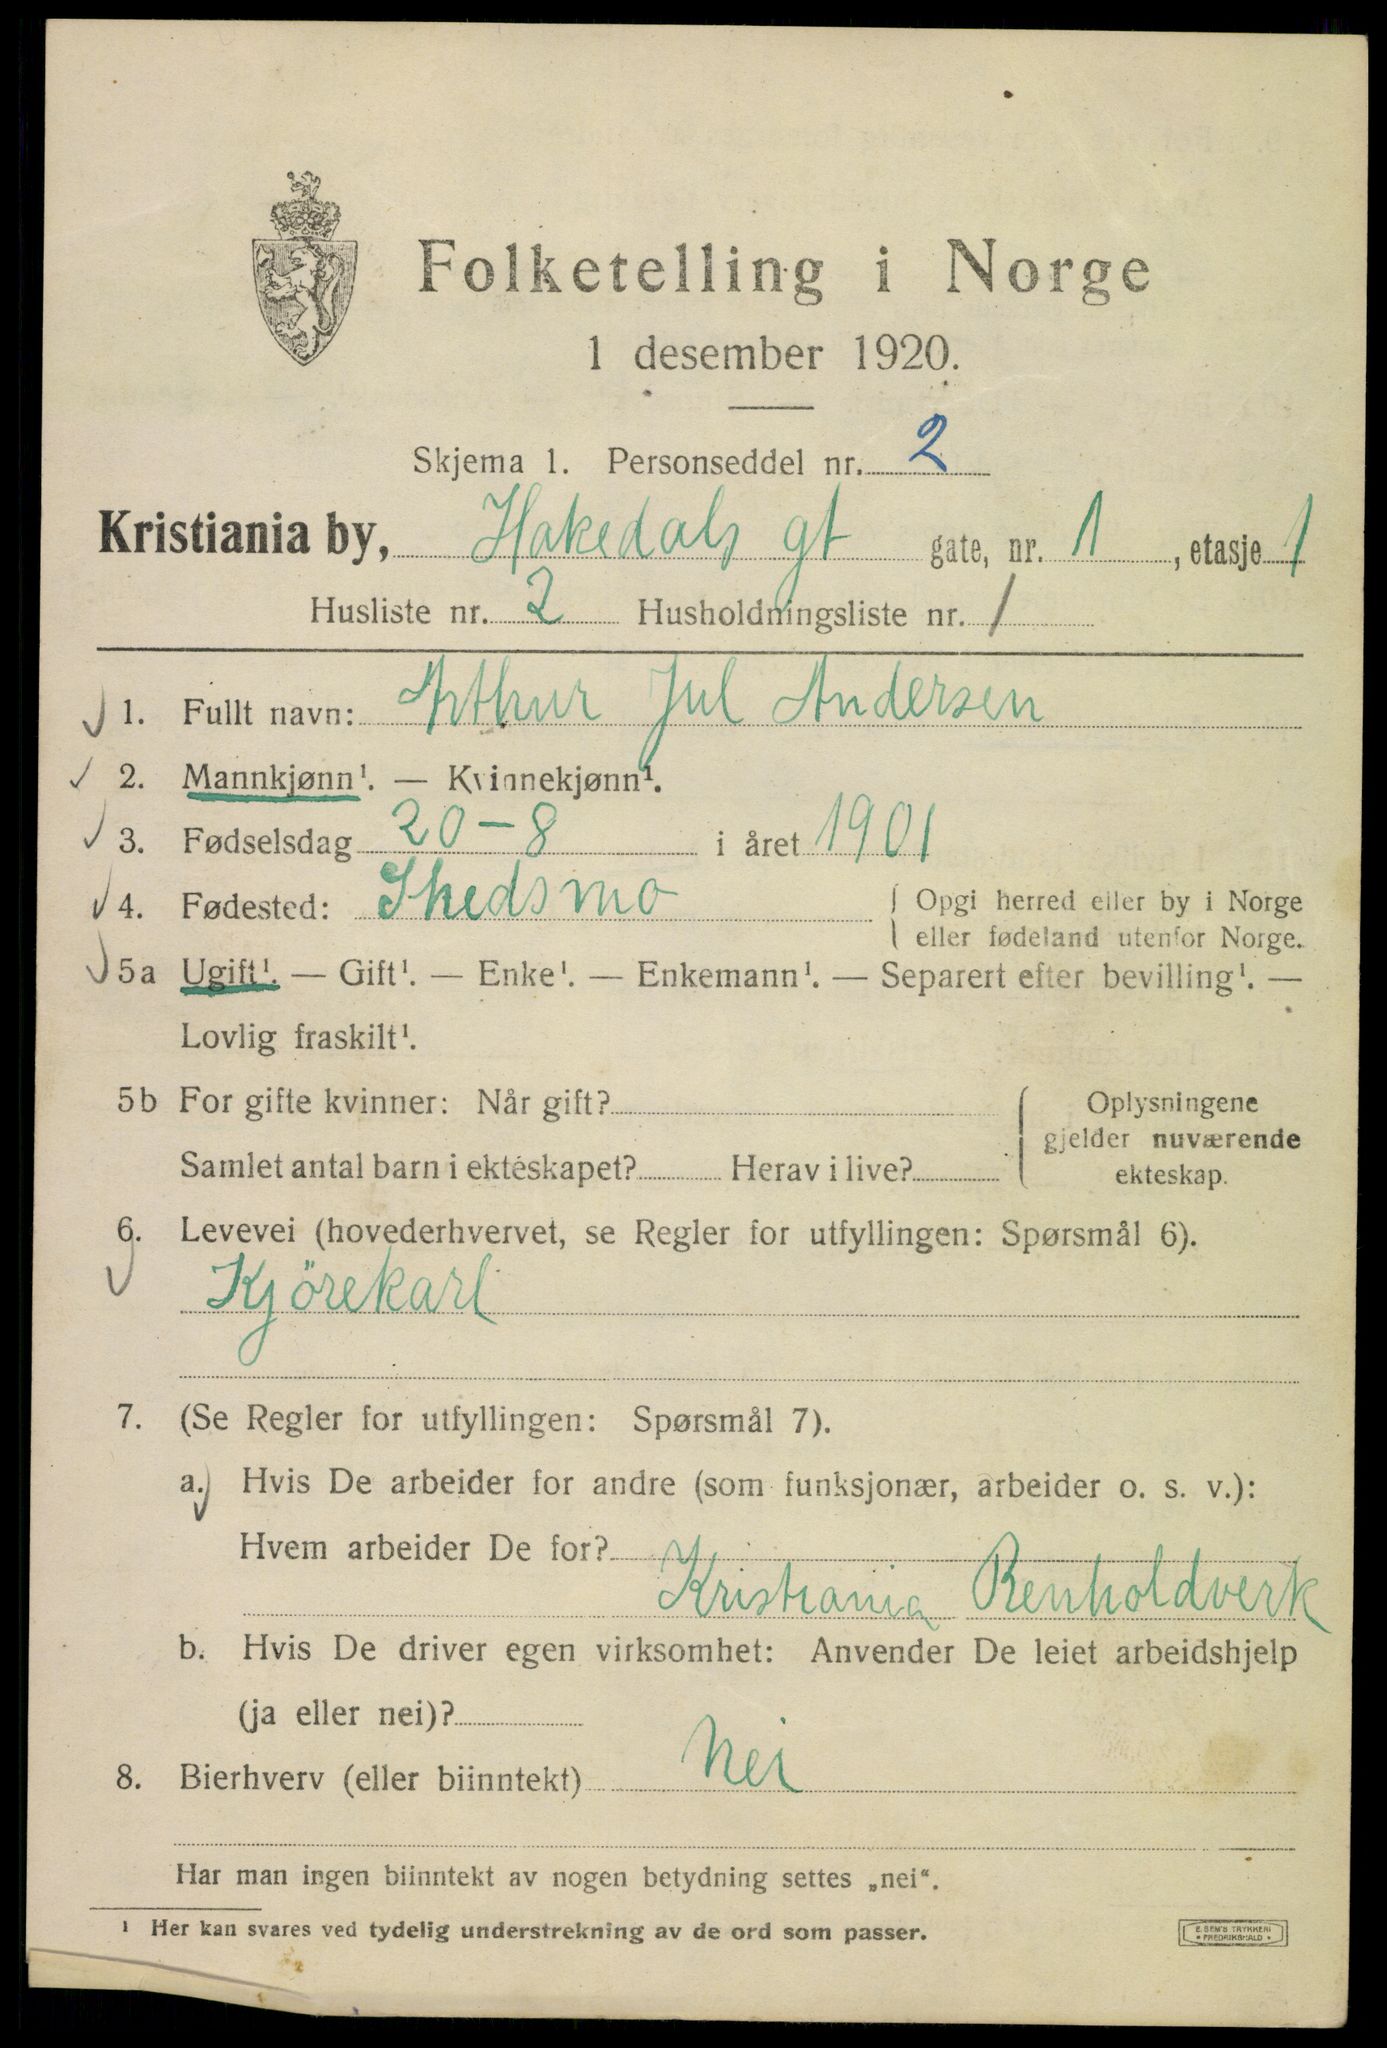 Folketelling i Norge
1 desember 1920.
Skjema 1. Personseddel nr. 2
Kristiania by, Hakedals gt gate, nr. 1, etasje 1
Husliste nr. 2 Husholdningsliste nr. 1
1. Fullt navn: Arthur Jul Andersen
2. Mannkjønn¹. — Kvinnekjønn¹.
3. Fødselsdag 20-8 i året 1901
4. Fødested: Skedsmo { Opgi herred eller by i Norge
eller fødeland utenfor Norge.
5a Ugift¹. — Gift¹. — Enke¹. — Enkemann¹. — Separert efter bevilling¹. —
Lovlig fraskilt¹.
5b For gifte kvinner: Når gift?
Samlet antal barn i ekteskapet? Herav i live?
{ Oplysningene
gjelder nuværende
ekteskap.
6. Levevei (hovederhvervet, se Regler for utfyllingen: Spørsmål 6).
Kjörekarl
7. (Se Regler for utfyllingen: Spørsmål 7).
a. Hvis De arbeider for andre (som funksjonær, arbeider o. s. v.):
Hvem arbeider De for?
Kristiania Renholdverk
b. Hvis De driver egen virksomhet: Anvender De leiet arbeidshjelp
(ja eller nei)?
8. Bierhverv (eller biinntekt) Nei
Har man ingen biinntekt av nogen betydning settes „nei“.
¹ Her kan svares ved tydelig understrekning av de ord som passer.
E. SEM'S TRYKKERI
• FREDRIKSHALD •